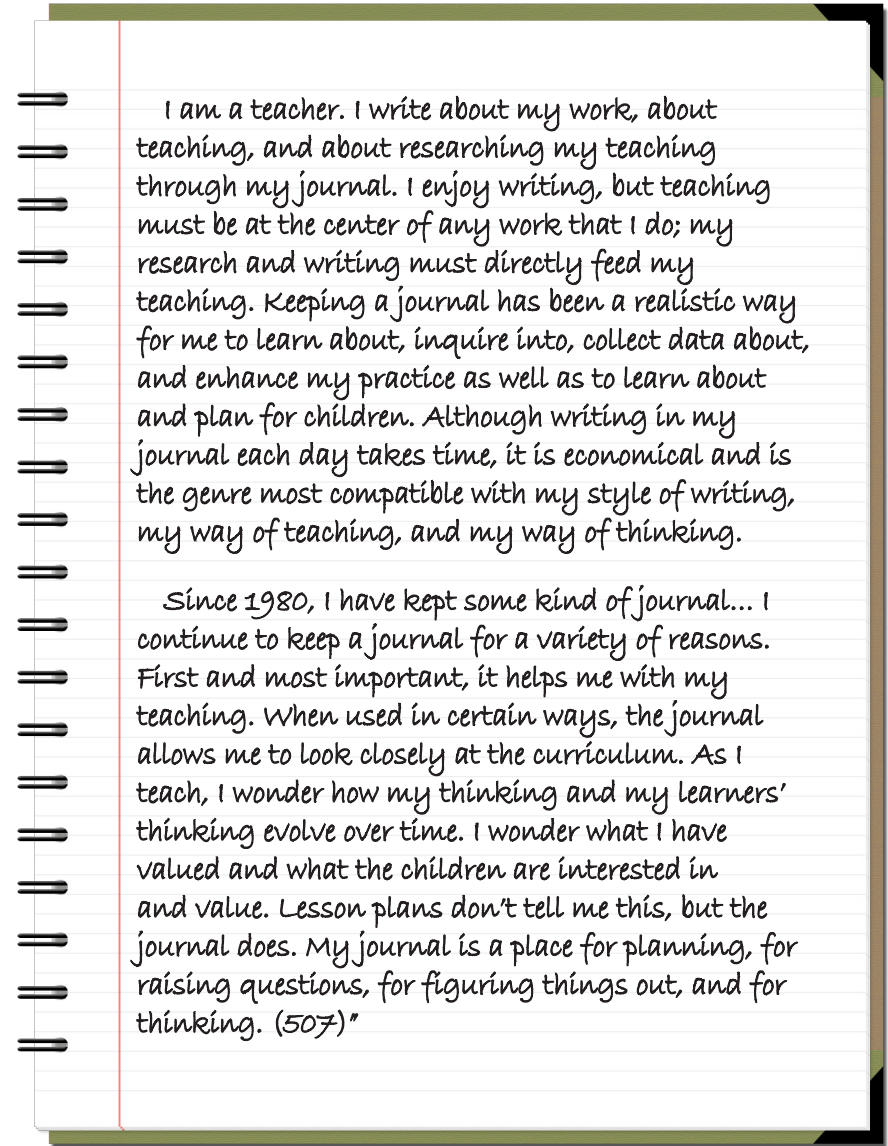 I am a teacher. I write about my work, about
teaching, and about researching my teaching
through my journal. I enjoy writing, but teaching
must be at the center of any work that I do; my
research and writing must directly feed my
teaching. Keeping a journal has been a realistic way
for me to learn about, inquire into, collect data about,
and enhance my practice as well as to learn about
and plan for children. Although writing in my
journal each day takes time, it is economical and is
the genre most compatible with my style of writing,
my way of teaching, and my way of thinking.
Since 1980, I have kept some kind of journal... I
continue to keep a journal for a variety of reasons.
First and most important, it helps me with my
teaching. When used in certain ways, the journal
allows me to look closely at the curriculum. As I
teach, I wonder how my thinking and my learners'
thinking evolve over time. I wonder what I have
valued and what the children are interested in
and value. Lesson plans don't tell me this, but the
journal does. My journal is a place for planning, for
raising questions, for figuring things out, and for
thinking. (507)"